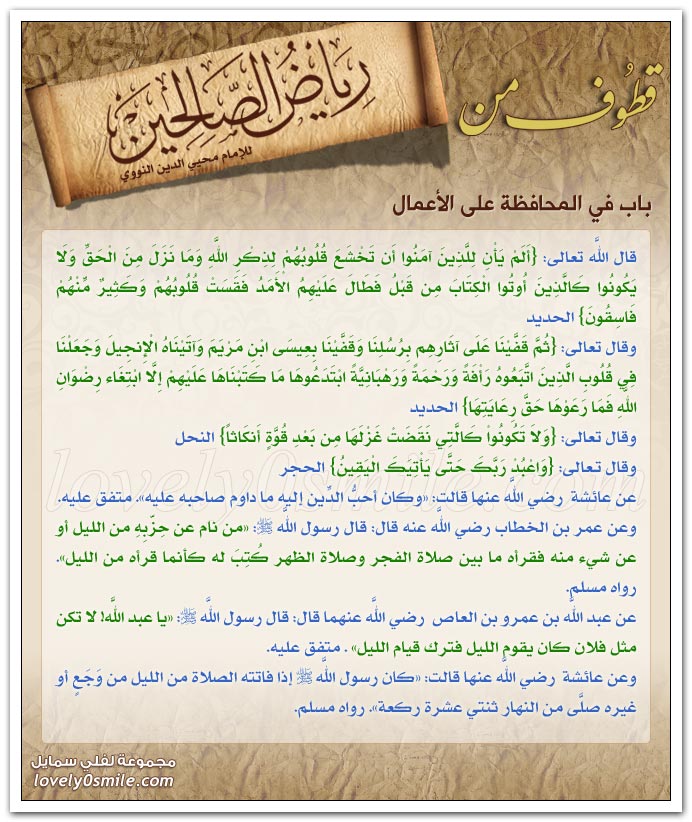 قطوف من
رياض الصالحين
للإمام محيي الدين النووي
باب في المحافظة على الأعمال
قال اللَّه تعالى: {أَلَمْ يَأْنِ لِلَّذِينَ آمَنُوا أَن تَخْشَعَ قُلُوبُهُمْ لِذِكْرِ اللَّهِ وَمَا نَزَلَ مِنَ الْحَقِّ وَلَا
يَكُونُوا كَالَّذِينَ أُوتُوا الكِتَابَ مِن قَبْلُ فَطَالَ عَلَيْهِمُ الْأَمَدُ فَقَسَتْ قُلُوبُهُمْ وَكَثِيرٌ مِّنْهُمْ
فَاسِقُونَ} الحديد
وقال تعالى: {ثُمَّ قَفَّيْنَا عَلَى آثَارِهِم بِرُسُلِنَا وَقَفَّيْنَا بِعِيسَى ابْنِ مَرْيَمَ وَآتَيْنَاهُ الْإِنجِيلَ وَجَعَلْنَا
فِي قُلُوبِ الَّذِينَ اتَّبَعُوهُ رَأْفَةً وَرَحْمَةً وَرَهْبَانِيَّةً ابْتَدَعُوهَا مَا كَتَبْنَاهَا عَلَيْهِمْ إِلَّا ابْتِغَاء رِضْوَانِ
اللَّهِ فَمَا رَعَوْهَا حَقَّ رِعَايَتِهَا} الحديد
وقال تعالى: {وَلاَ تَكُونُواْ كَالَّتِي نَقَضَتْ غَزْلَهَا مِن بَعْدِ قُوَّةٍ أَنكَاثاً} النحل
وقال تعالى: {وَاعْبُدْ رَبَّكَ حَتَّى يَأْتِيَكَ الْيَقِينُ} الحجر
عن عائشة رضي اللَّه عنها قالت: «وكان أحبُّ الدِّين إليه ما داوم صاحبه عليه». متفق عليه.
وعن عمر بن الخطاب رضي اللَّه عنه قال: قال رسول اللَّه ﷺ: «من نام عن حِزْبِهِ من الليل أو
عن شيء منه فقرأه ما بين صلاة الفجر وصلاة الظهر كُتِبَ له كأنما قرأه من الليل».
رواه مسلم.
عن عبد اللَّه بن عمرو بن العاص رضي اللَّه عنهما قال: قال رسول اللَّه ﷺ: «يا عبد اللَّه! لا تكن
مثل فلان كان يقوم الليل فترك قيام الليل» . متفق عليه.
وعن عائشة رضي اللَّه عنها قالت: «كان رسول اللَّه ﷺ إذا فاتته الصلاة من الليل من وَجَعٍ أو
غيره صلَّى من النهار ثنتي عشرة ركعة». رواه مسلم.
lovely0smile.com
مجموعة لفلي سمايل
lovely0smile.com